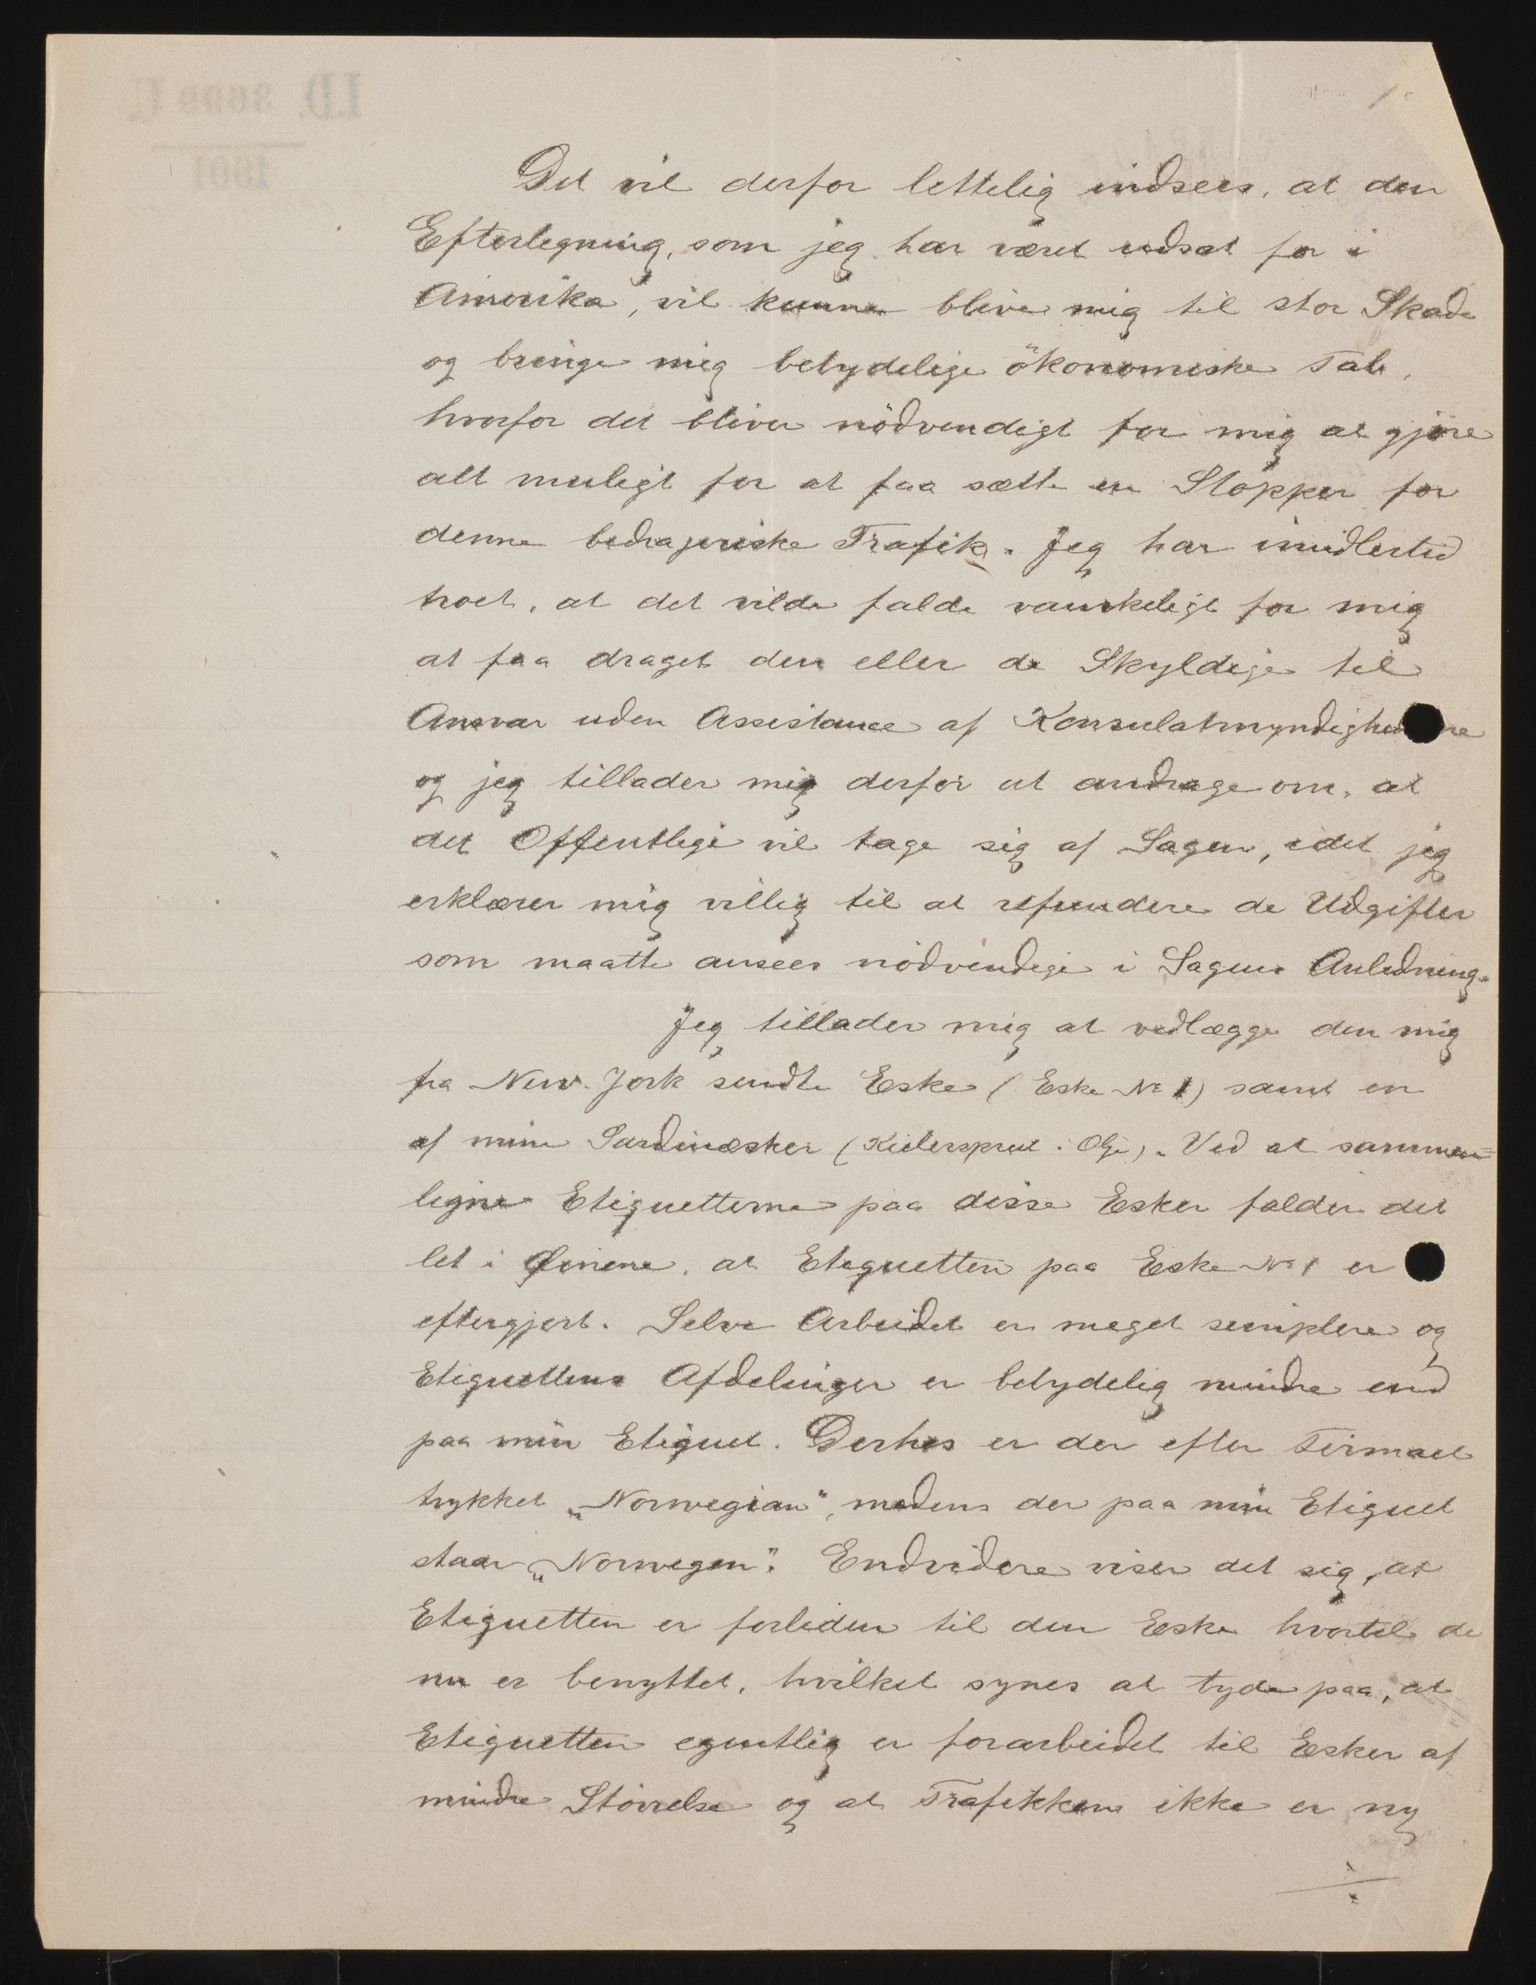 Det vil derfor lettelig indsees, at den
Efterlegning, som jeg har været udsat for i
Amerika, vil kunne blive mig til stor Skade
og bringe mig betydelige ökonomiske Tab,
hvorfor det bliver nödvendigt for mig at gjöre
alt muligt for at faa sætte en Stopper for
denne bedrageriske Trafik. Jeg har imidlertid
troet, at det vilde falde vanskeligt for mig
at faa draget den eller de Skyldige til
Ansvar uden Assistance af Konsulatmyndighederne
og jeg tillader mig derfor at andrage om, at
det Offentlige vil tage sig af Sagen, idet jeg
erklærer mig villig til at refundere de Udgifter
som maatte ansees nödvendige i Sagens Anledning.
Jeg tillader mig at vedlægge den mig
fra New-York sendte Eske (Eske No 1) samt en
af mine Sardinæsker (Kielersprat i Olje). Ved at sammen=
ligne Etiquetterne paa disse Esker falder det
let i Öinene, at Etiquetten paa Eske No 1 er
eftergjort. Selve Arbeidet er meget simplere og
Etiquettens Afdelinger er betydelig mindre end
paa min Etiquet. Derhos er der efter Firmaet
trykket „Norwegian", medens der paa min Etiquet
staar „Norwegen". Endvidere viser det sig, at
Etiquetten er forliden til den Eske hvortil de
nu er benyttet, hvilket synes at tyde paa, at
Etiquetten egentlig er forarbeidet til Esker af
mindre Störrelse og at Trafikken ikke er ny
./.